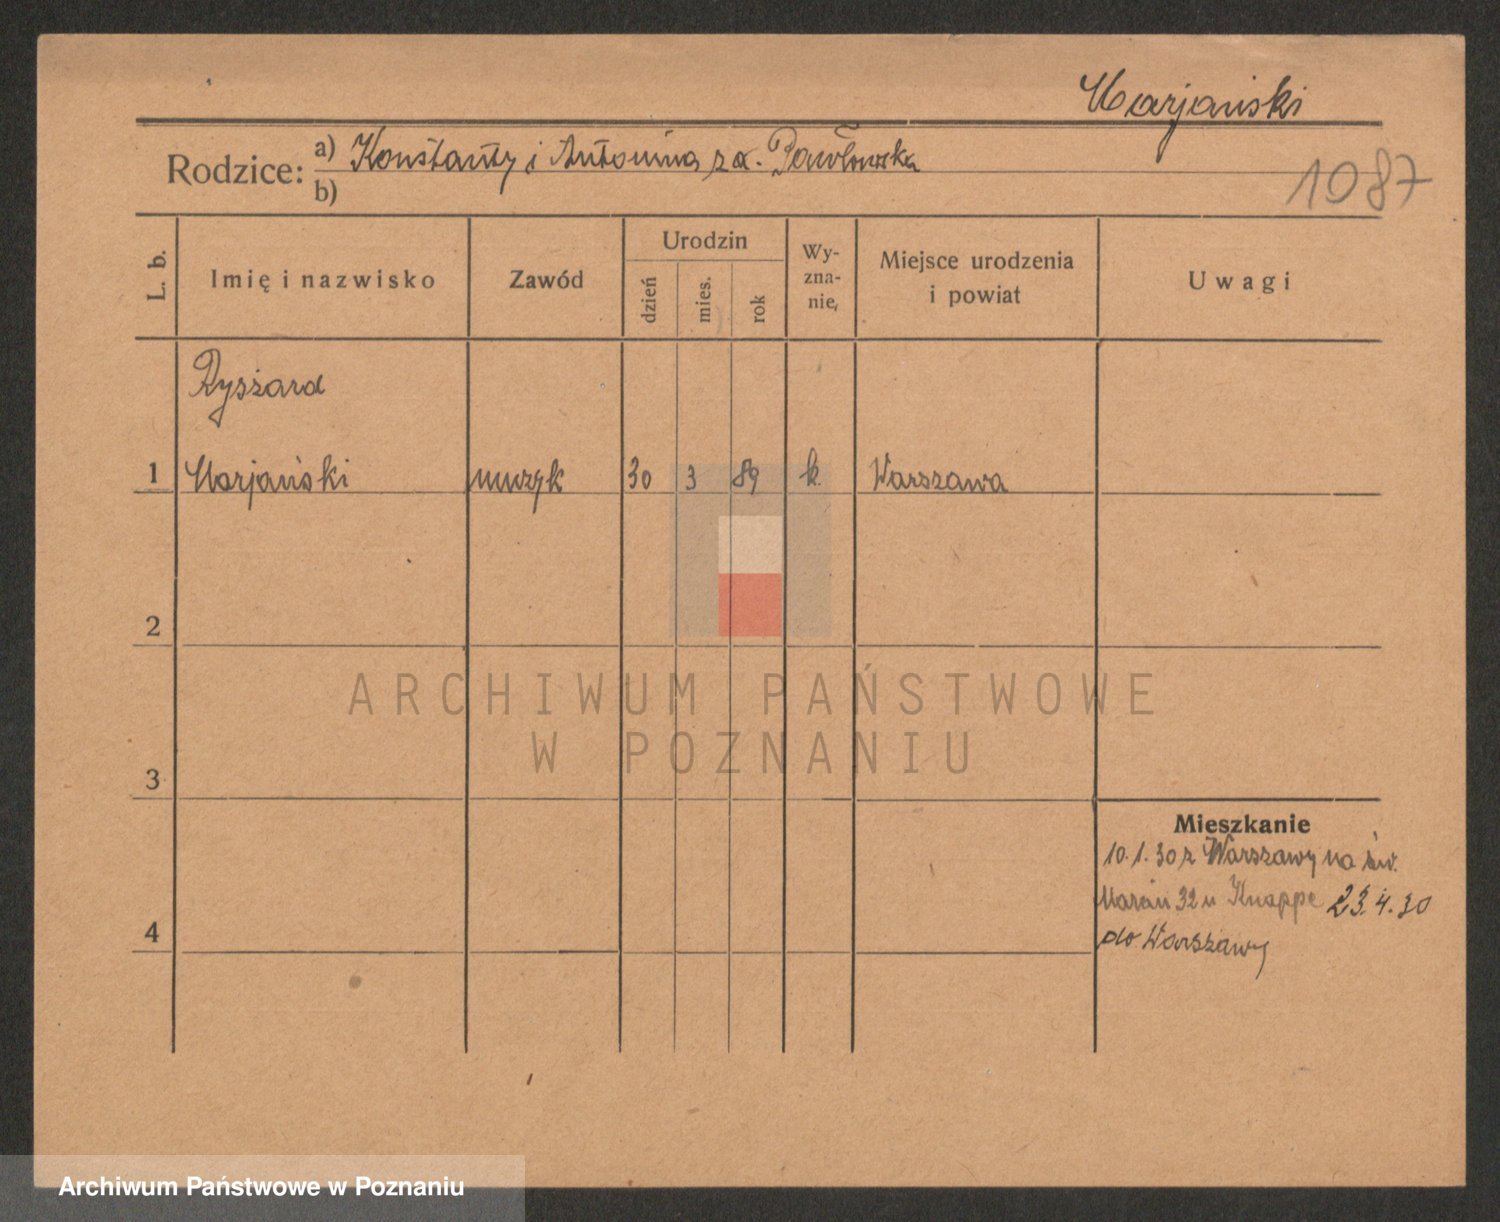 Marjański
Rodzice: a) Konstanty i Antonina z d. Pawłowska
b)
1087
L. b.
Imię i nazwisko
Zawód
Urodzin
dzień
mies.
rok
Wy-
zna-
nie
Miejsce urodzenia
i powiat
Uwagi
Ryszard
1 Marjański muzyk 30 3 89 k. Warszawa
2
ARCHIWUM PAŃSTWOWE
W POZNANIU
3
Mieszkanie
10.1.30 z Warszawy na św.
Marcin 32 u Knappe 23.4.30
4
do Warszawy
Archiwum Państwowe w Poznaniu